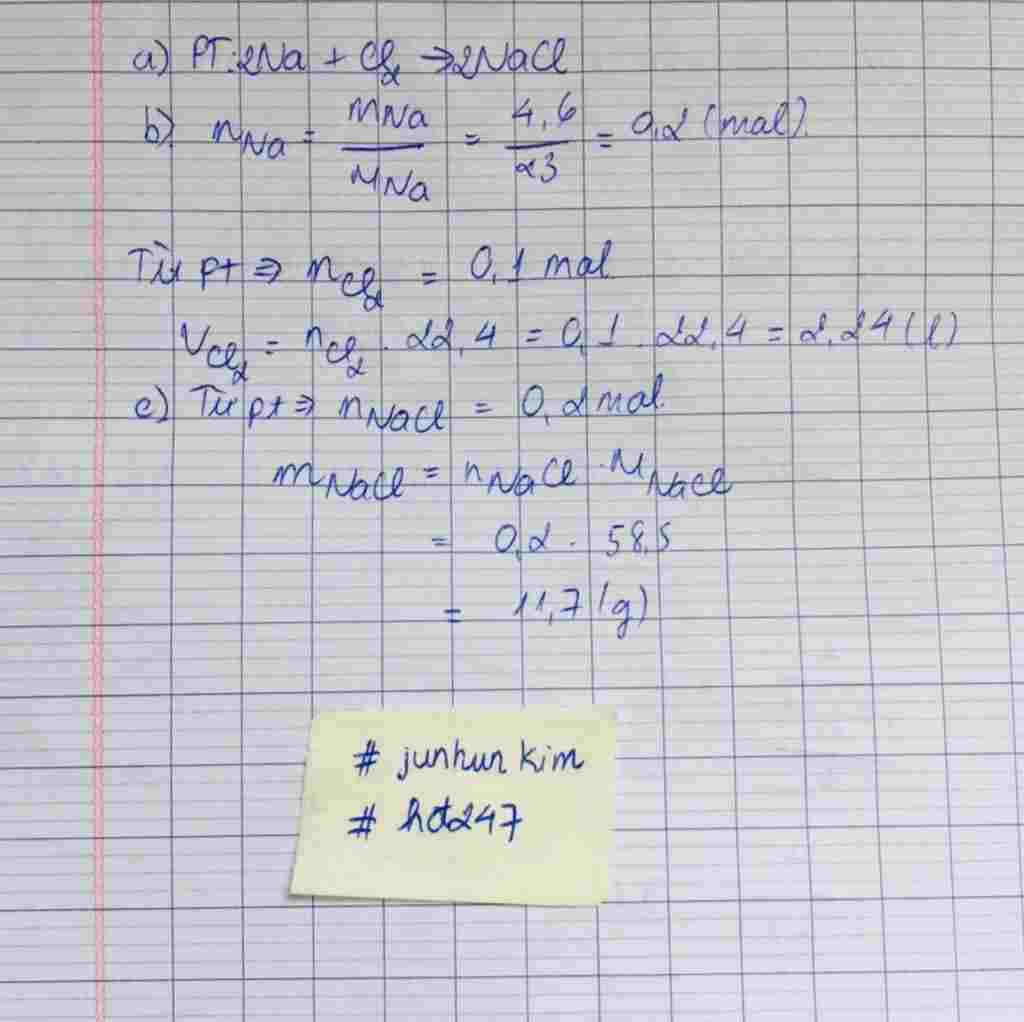 a) PT: 2Na + Cl₂ → 2NaCl
b) nNa = mNa / MNa = 4,6 / 23 = 0,2 (mol)
Từ pt ⇒ nCl₂ = 0,1 mol
VCl₂ = nCl₂ . 22,4 = 0,1 . 22,4 = 2,24 (l)
c) Từ pt ⇒ nNaCl = 0,2 mol.
mNaCl = nNaCl . MNaCl
= 0,2 . 58,5
= 11,7 (g)
# junhun kim
# hd247